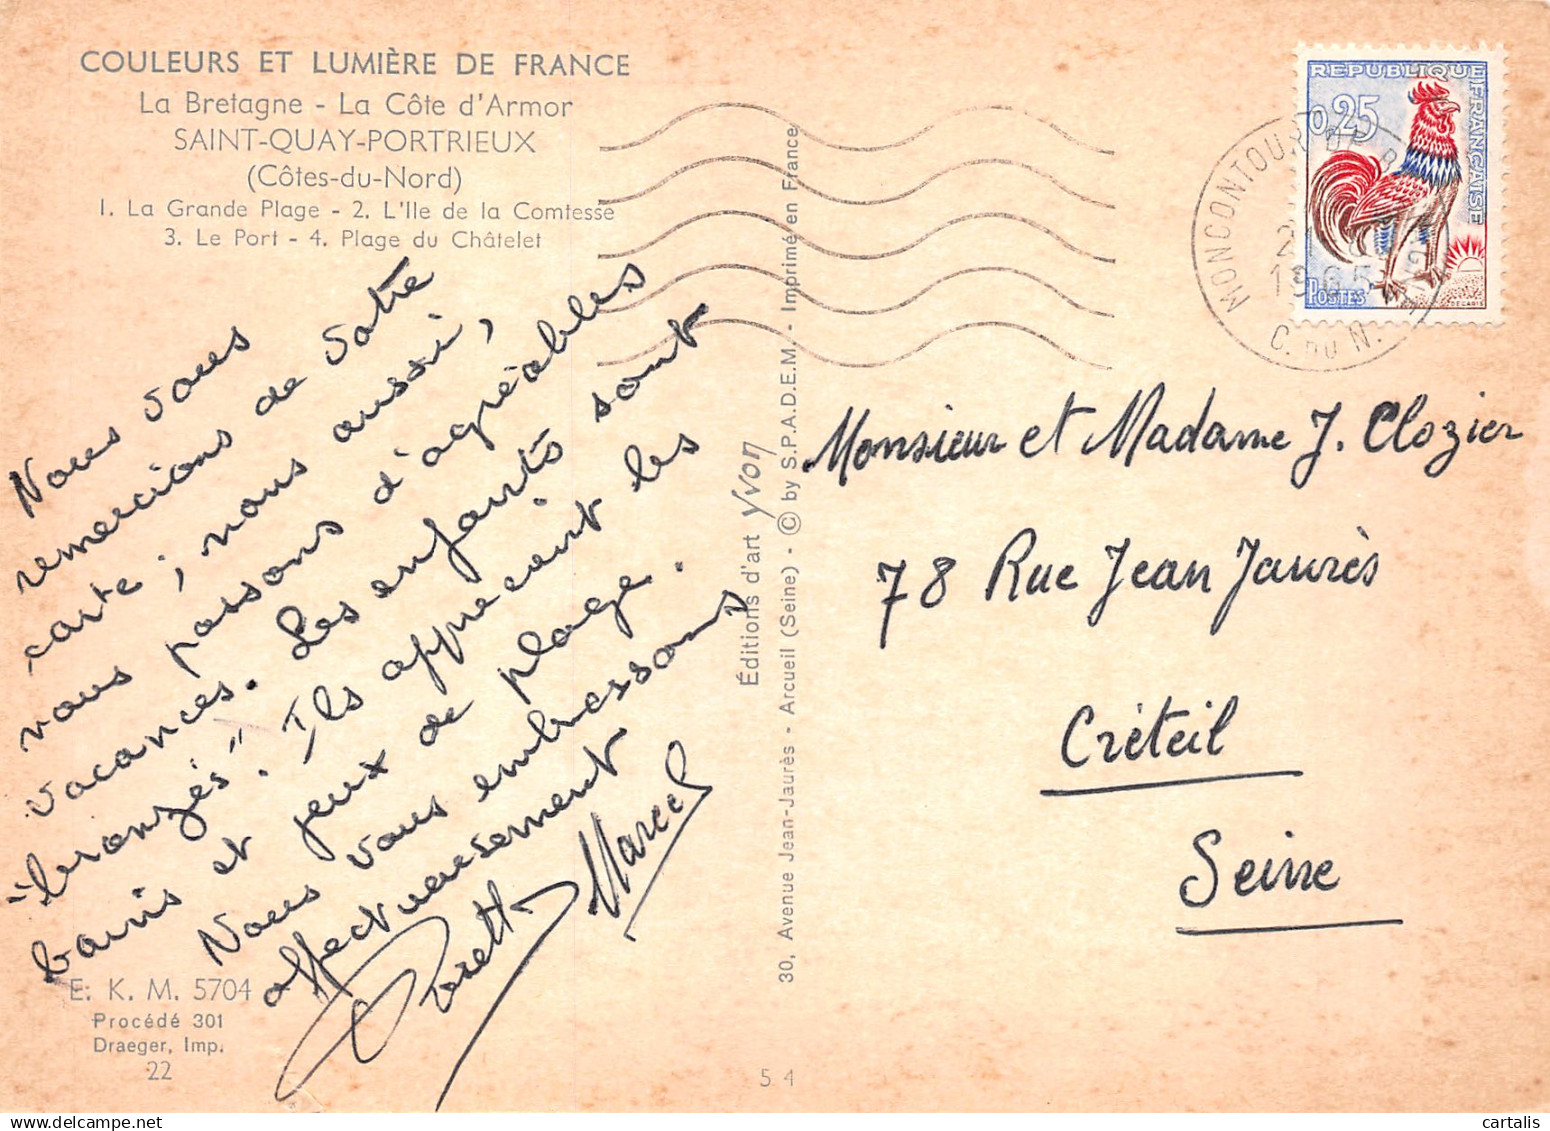 COULEURS ET LUMIÈRE DE FRANCE
La Bretagne - La Côte d'Armor
SAINT-QUAY-PORTRIEUX
(Côtes-du-Nord)
1. La Grande Plage - 2. L'Ile de la Comtesse
3. Le Port - 4. Plage du Châtelet
Nous vous
remercions de votre
carte ; nous aussi,
nous passons d'agréables
vacances. Les enfants sont
"bronzés". Ils apprécient les
bains et jeux de plage.
Nous vous embrassons
affectueusement
Marcel
E. K. M. 5704
Procédé 301
Draeger, Imp.
22
Éditions d'art Yvon
30, Avenue Jean-Jaurès - Arcueil (Seine) - © by S.P.A.D.E.M. - Imprimé en France
5 4
REPUBLIQUE FRANÇAISE
0,25
POSTES
DECARIS
MONCONTOUR DE B
1965
C. DU N.
Monsieur et Madame J. Clozier
78 Rue Jean Jaurès
Créteil
Seine
cartalis